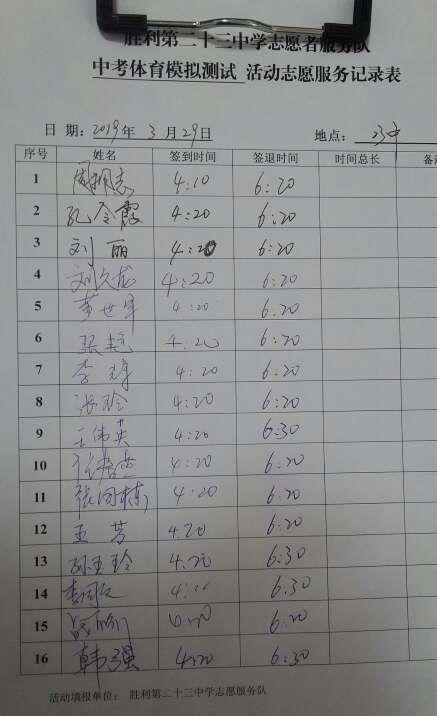 胜利第二十三中学志愿者服务队
中考体育模拟测试 活动志愿服务记录表
日 期: 2019年 3月29日 地点: 23中
序号 姓名 签到时间 签退时间 时间总长 备
1 4:10 6:20
2 孔令霞 4:20 6:20
3 刘丽 4:20 6:20
4 4:20 6:20
5 黄世军 4:20 6:20
6 张艳 4:20 6:20
7 4:20 6:20
8 张玲 4:20 6:20
9 王伟英 4:20 6:30
10 4:20 6:20
11 4:20 6:20
12 王芳 4:20 6:20
13 孙玉玲 4:20 6:30
14 6:30
15 6:20
16 韩强 4:20 6:30
活动填报单位: 胜利第二十三中学志愿服务队